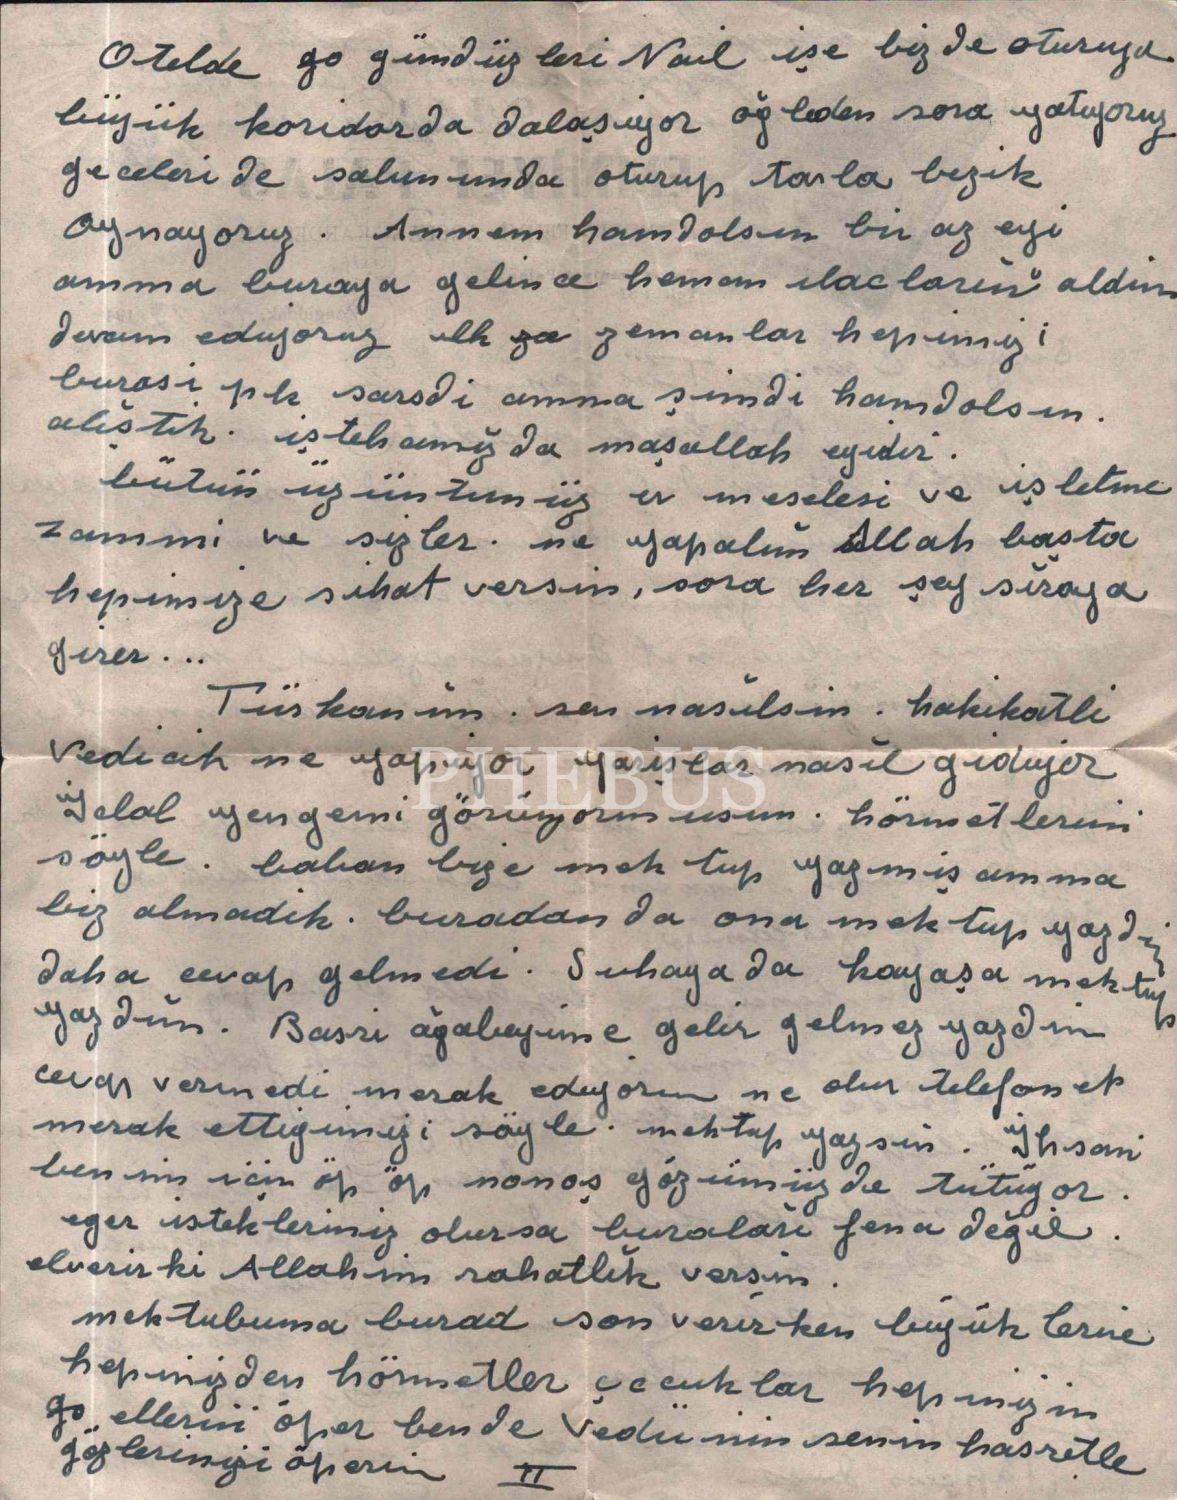 Otelde go gündüzleri Nail işe biz de oturuyor
büyük koridorda dolaşıyor öğleden sora yatıyoruz
geceleri de salununda oturup tavla bezik
oynayoruz. Annem hamdolsun bir az eyi
amma buraya gelince heman ilaclarını aldım
devam ediyoruz ilk za zemanlar hepimizi
burası pk sarsdi amma şimdi hamdolsın.
alıştık. iştehamızda maşallah eyidir.
bütün üzüntumüz ev meselesi ve işletme
zammi ve sizler. ne yapalım Allah başta
hepimize sihat versin, sora her şey sıraya
girer...
Türkanım. sen nasılsın. hakikatli
Vedicik ne yapıyor yarışlar nasıl gidiyor
Jelal yengemi görüyormusun. hörmetlerimi
söyle. baban bize mektup yazmış amma
biz almadik. buradan da ona mektup yazdım
daha cevap gelmedi. Suhaya da kayaşa mektup
yazdım. Basri ağabeyime gelir gelmez yazdım
cevap vermedi merak ediyorum ne olur telefon et
merak ettiğimizi söyle. mektup yazsın. İhsani
benim için öp öp nonoş gözümüzde tütüyor.
eger istekleriniz olursa buraları fena değil.
elverirki Allahım rahatlık versin.
mektubuma burad son verirken büyüklerine
hepimizden hörmetler çocuklar hepinizin
go ellerini öper bende Vediinin senin hasretle
gözlerinizi öperim II
PHEBUS